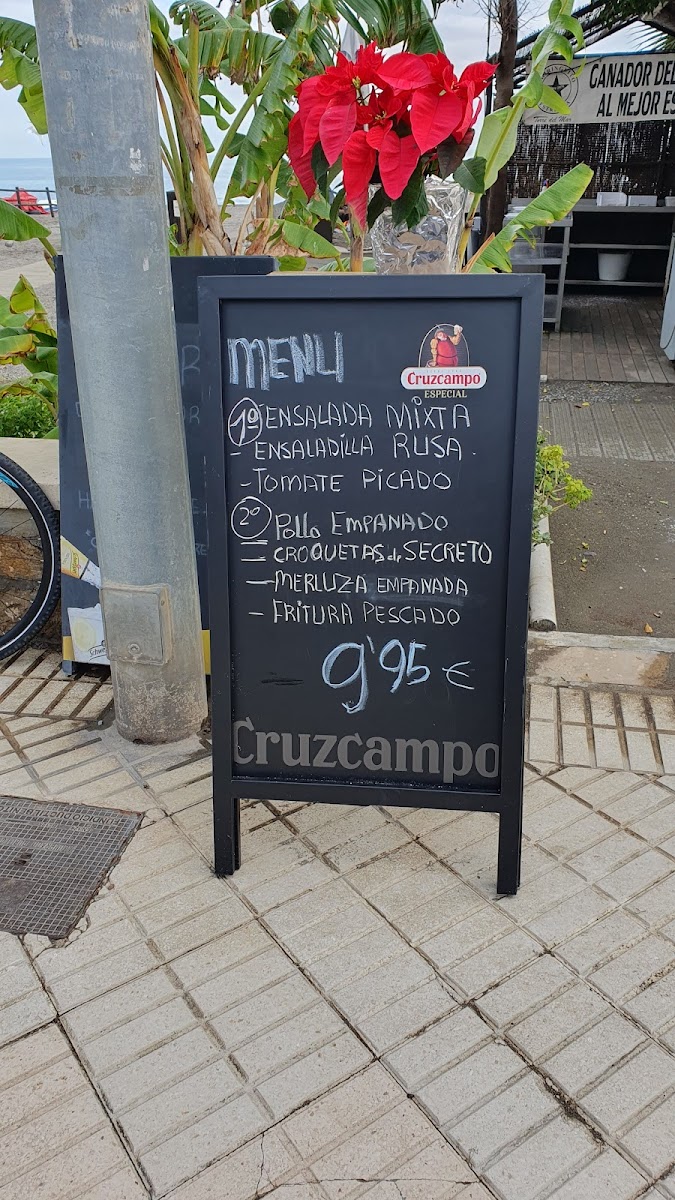 GANADOR DEL
AL MEJOR ES
Torre del Mar
MENU
Cruzcampo
ESPECIAL
1º ENSALADA MIXTA
- ENSALADILLA RUSA.
- TOMATE PICADO
2º Pollo EMPANADO
- CROQUETAS de SECRETO
- MERLUZA EMPANADA
- FRITURA PESCADO
9'95 €
Cruzcampo